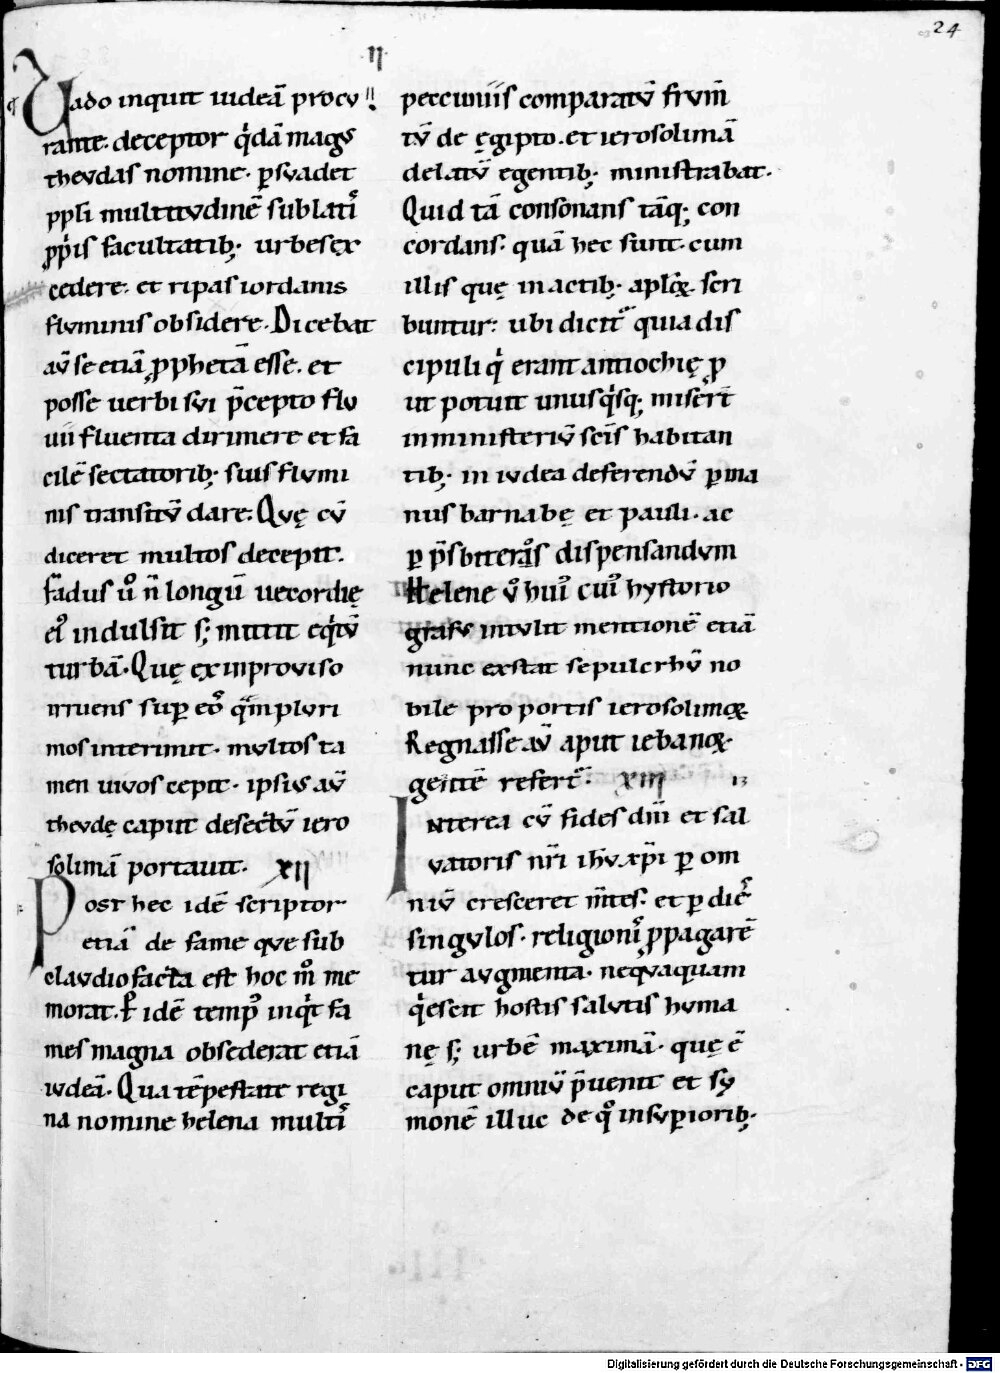 24
II
Uado inquit iudeā procu
rante. deceptor q̇dā magus
theudas nomine. ꝑsuadet
ppli multitudinē sublatis
ꝓp̍is facultatib; urbes ex
cedere. et ripas iordanis
fluminis obsidere. Dicebat
aū se etiā ꝓphetā esse. et
posse uerbi sui p̄cepto flu
uii fluenta dirimere et fa
cilē sectatorib; suis flumi
nis transitū dare. Quę cū
diceret multos decepit.
fadus u̾o n̄ longū uecordię
ei᾿ indulsit s; mittit eq̍tū
turbā. Quę ex inproviso
irruens suꝑ eos q̄mpluri
mos interimit. multos ta
men uivos cepit. ipsius aū
theudę caput desectū iero
solimā portauit. XII
Post hec idē scriptor
etiā de fame que sub
claudio facta est hoc m̊ me
morat. Ꝑ idē temp᾿ inq̍t fa
mes magna obsederat etiā
iudeā. Qua tēpestate regi
na nomine helena multis
peccuniis comparatū frum̄
tū de ęgipto. et ierosolimā
delatū egentib; ministrabat.
Quid tā consonans tāq; con
cordans. quā hec sunt. cum
illis quę in actib; aplꝝ scri
buntur: ubi dicit᾿ quia dis
cipuli q̍ erant antiochię ꝓ
ut potuit unusq̍sq; miser̄t
in ministeriū sc̄is habitan
tib; in iudea deferendū ꝑ ma
nus barnabę et pauli. ac
ꝑ p̄sbiteros dispensandum
Helene u̾ hui᾿ cui᾿ hystorio
grafus intulit mentionē etiā
nunc exstat sepulcrhū no
bile pro portis ierosolimoꝝ.
Regnasse aū aput iebanoꝝ
gentē refert᾿. XIII 13
Interea cū fides dn̄i et sal
vatoris nr̄i ih̄u xp̄i ꝑ om
niū cresceret m̄tes. et ꝑ dies
singulos. religionis ꝓpagarē
tur augmenta. nequaquam
q̍escit hostis salutis huma
nę s; urbē maximā. quę ē
caput omniū p̄uenit et sy
monē illuc de q᾿ in suꝑiorib;
Digitalisierung gefördert durch die Deutsche Forschungsgemeinschaft - DFG